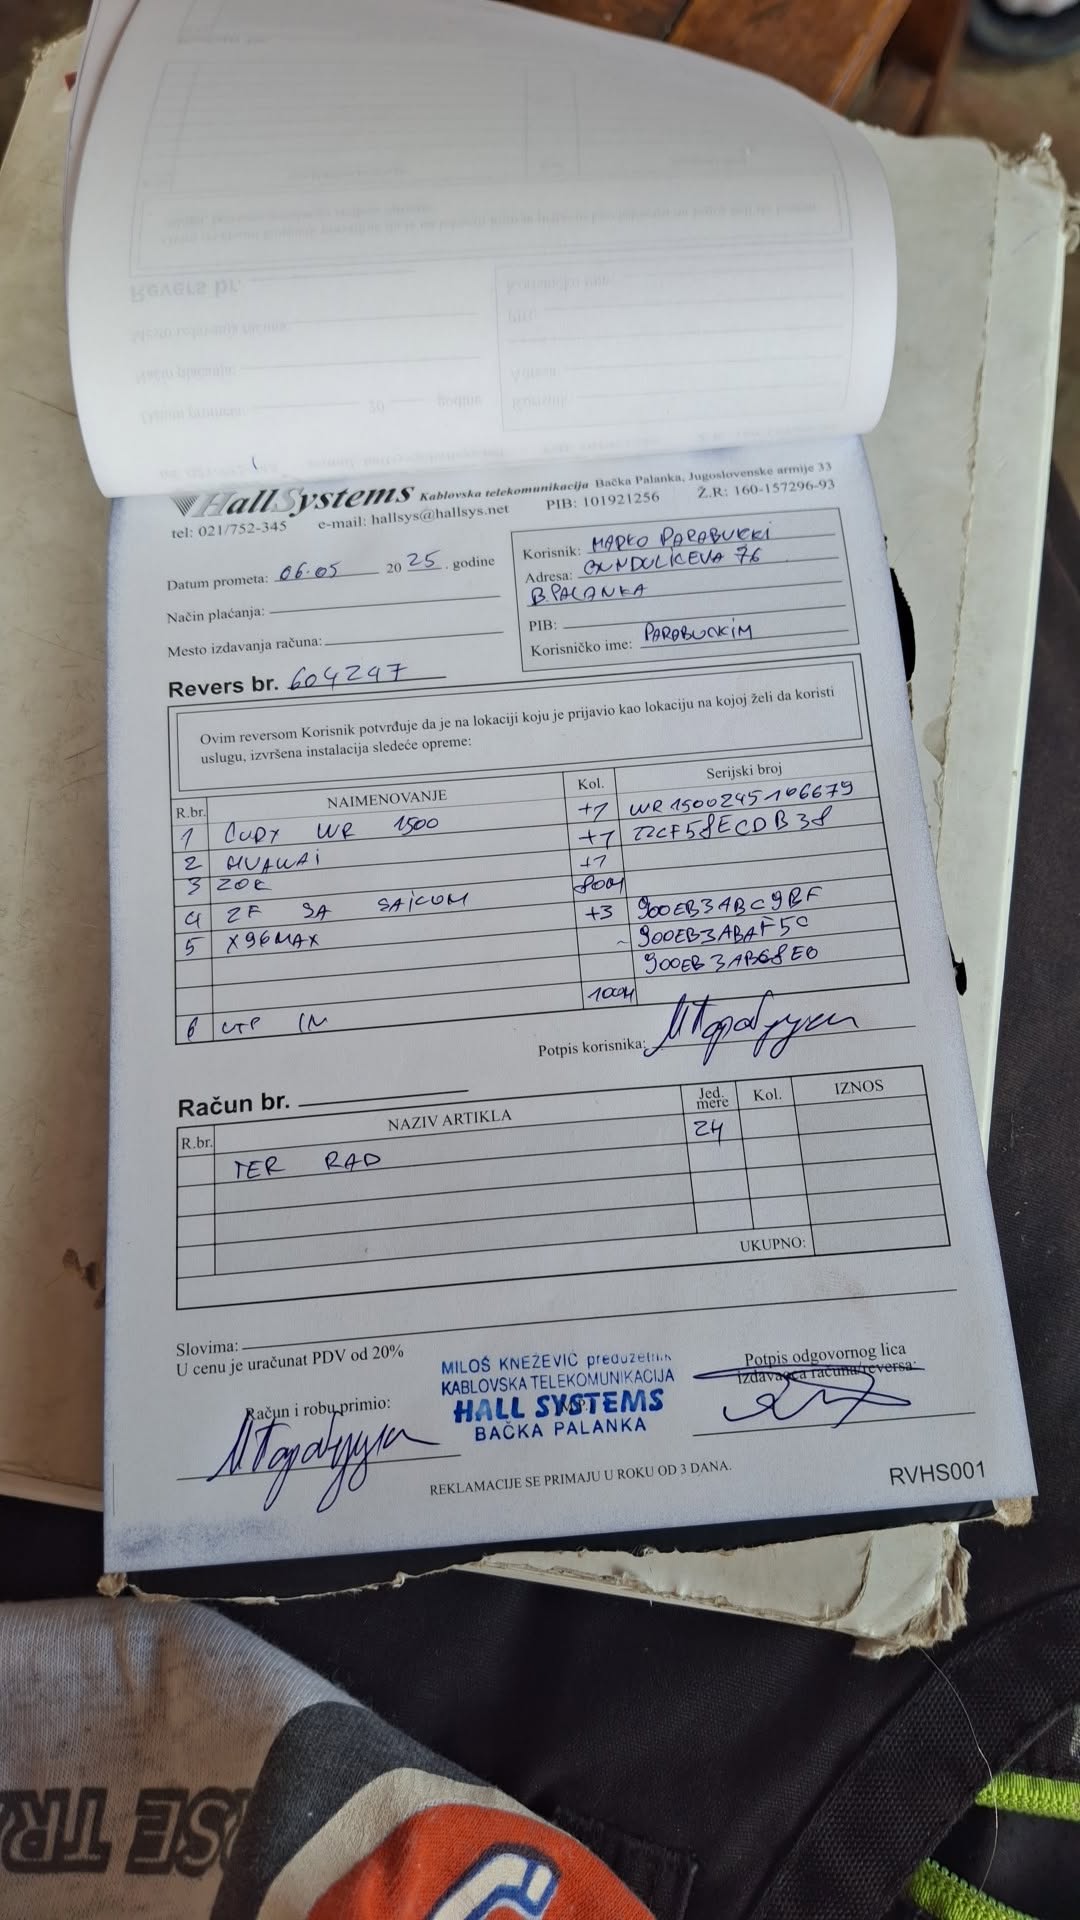 HallSystems Kablovska telekomunikacija Bačka Palanka, Jugoslovenske armije 33
tel: 021/752-345 e-mail: hallsys@hallsys.net PIB: 101921256 Ž.R: 160-157296-93
Datum prometa: 06.05 20 25. godine
Način plaćanja:
Mesto izdavanja računa:
Korisnik: MARKO PARABUCKI
Adresa: GUNDULIĆEVA 76
B.PALANKA
PIB:
Korisničko ime: PARABUCKIM
Revers br. 604247
Ovim reversom Korisnik potvrđuje da je na lokaciji koju je prijavio kao lokaciju na kojoj želi da koristi
uslugu, izvršena instalacija sledeće opreme:
R.br. NAIMENOVANJE Kol. Serijski broj
1 CUDY WR 1500 +1 WR1500245106679
2 HUAWAI +1 22CF58ECDB38
3 ZOK +1
4 2F SA SAJCOM 80M
5 X96MAX +3 900EB3ABC9BF
900EB3ABAF5C
900EB3AB68E0
6 UTP IN 100M
Potpis korisnika:
Račun br.
R.br. NAZIV ARTIKLA Jed. mere Kol. IZNOS
TER RAD 2H
UKUPNO:
Slovima:
U cenu je uračunat PDV od 20%
Račun i robu primio:
MILOŠ KNEŽEVIĆ preduzetnik
KABLOVSKA TELEKOMUNIKACIJA
HALL SYSTEMS
BAČKA PALANKA
M.P.
Potpis odgovornog lica
izdavaoca računa/reversa:
REKLAMACIJE SE PRIMAJU U ROKU OD 3 DANA.
RVHS001